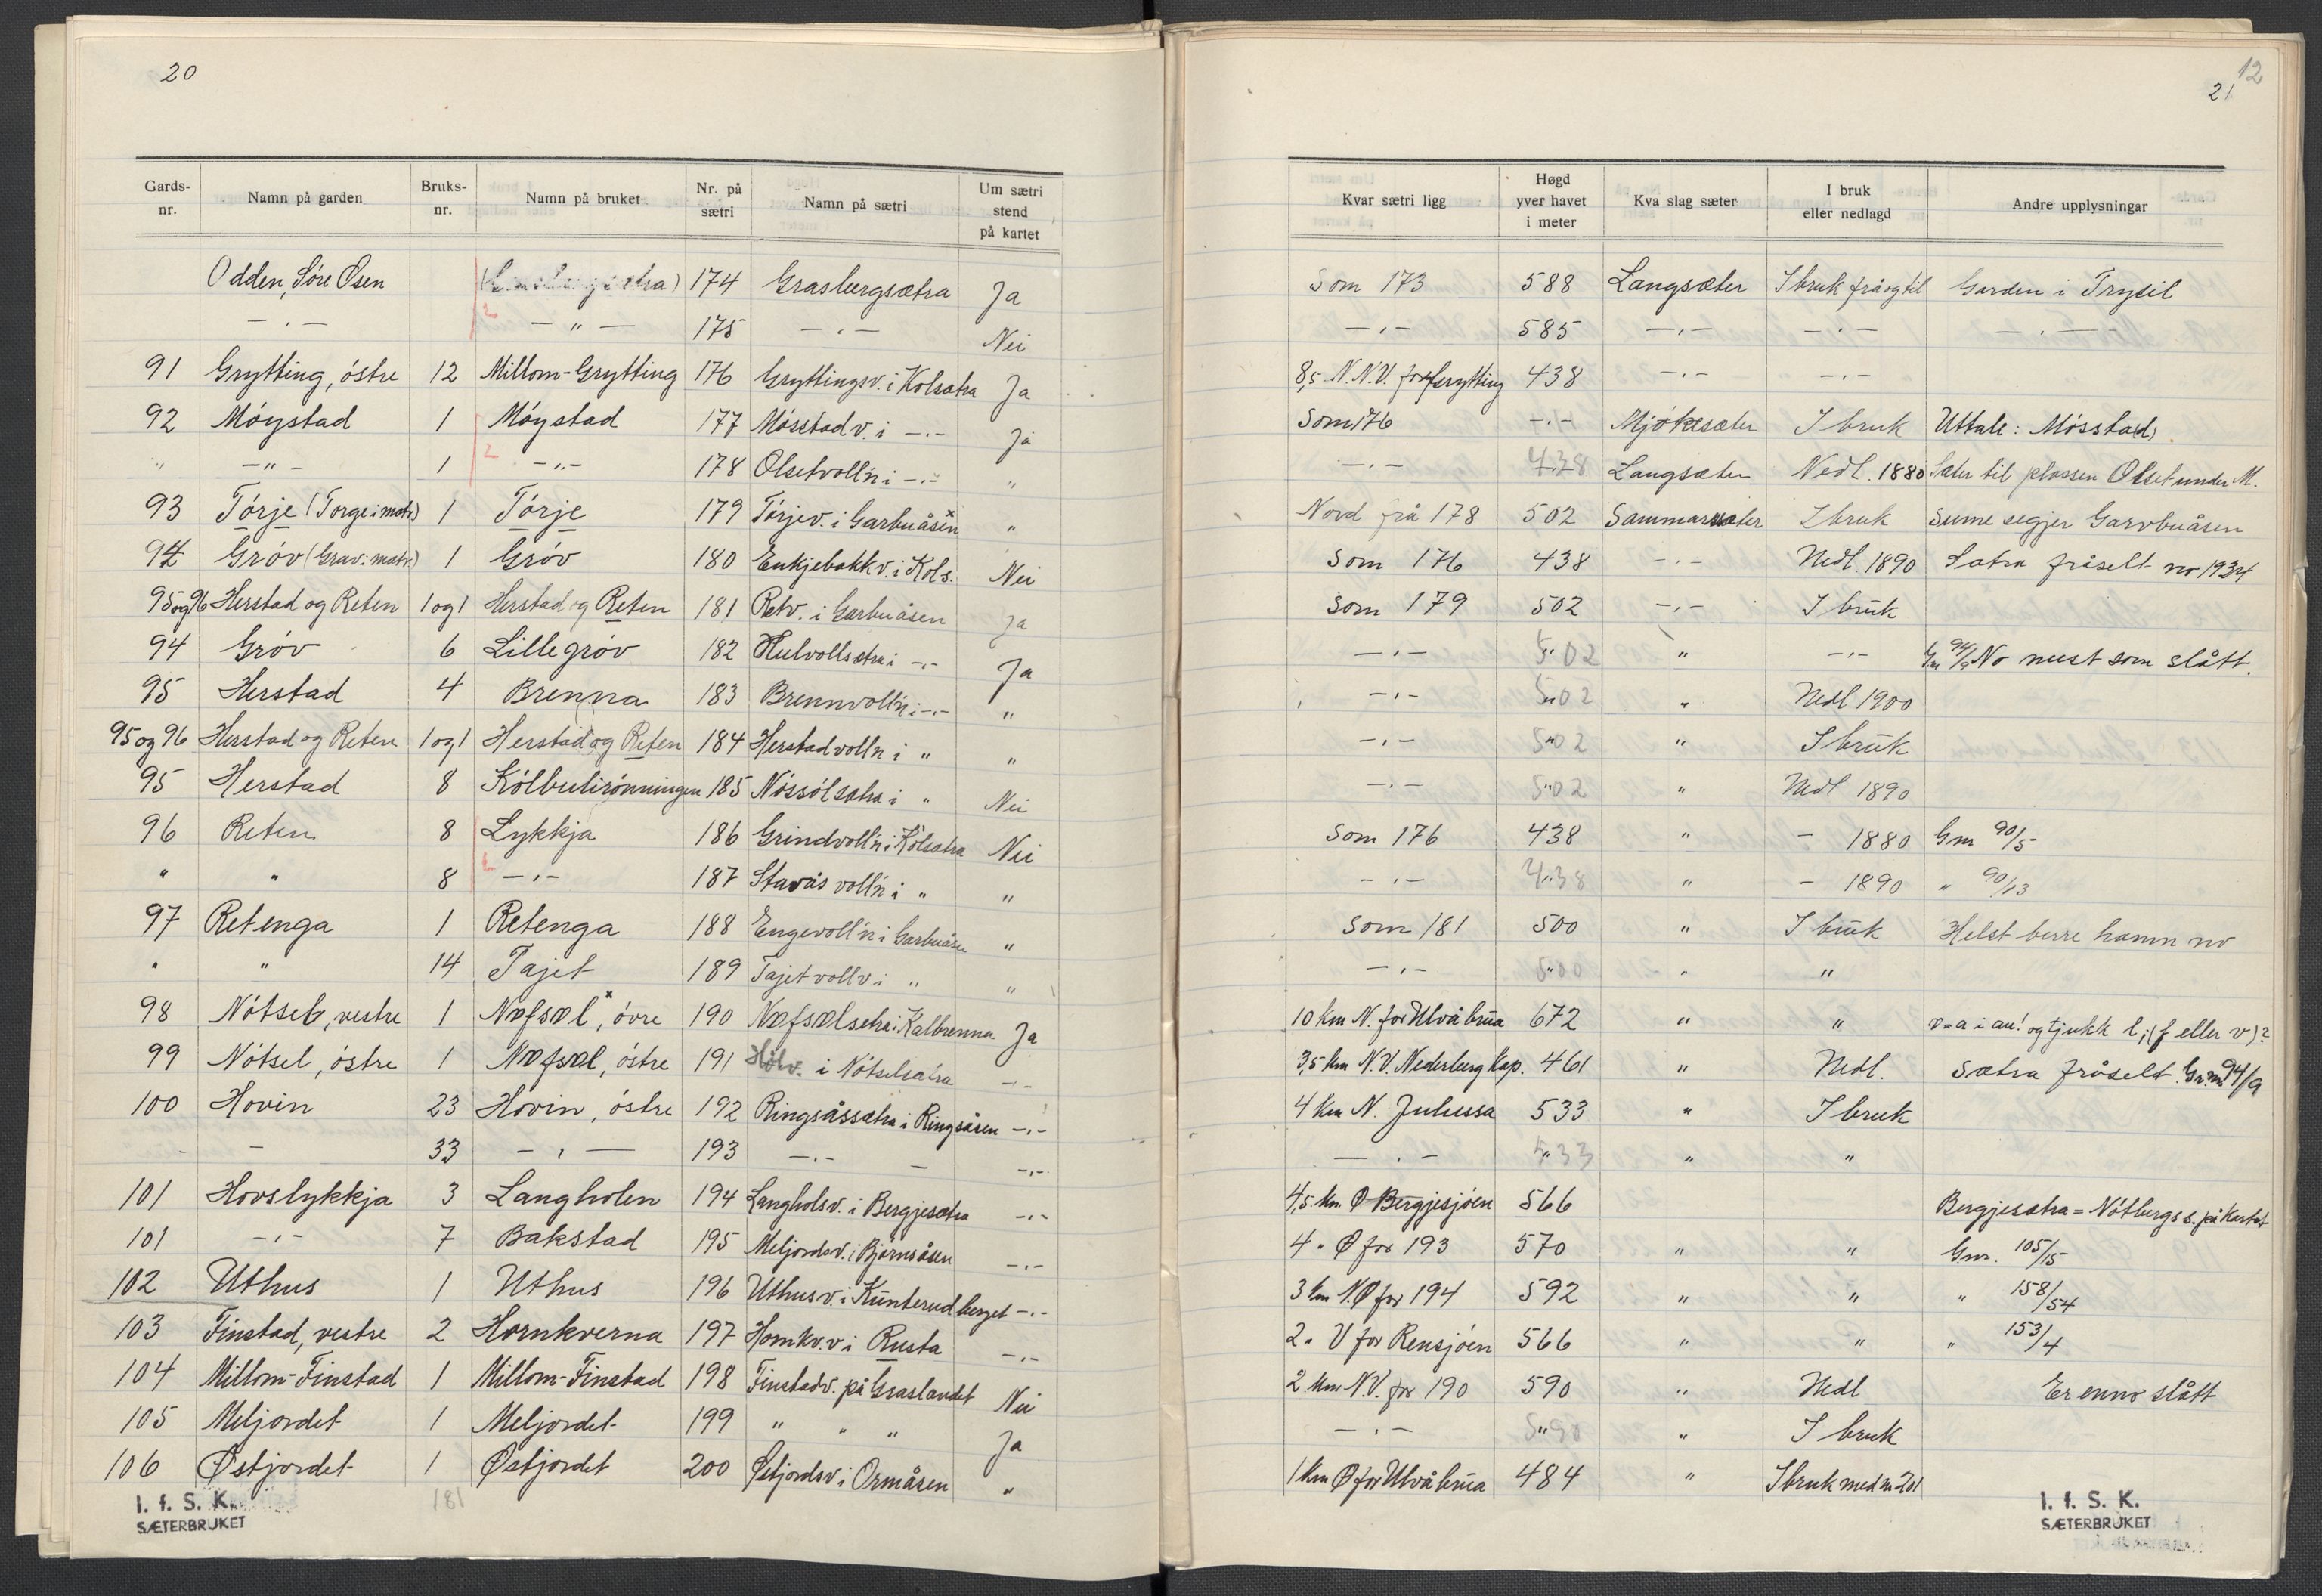 20
Gards-nr. Namn på garden Bruks-nr. Namn på bruket Nr. på sætri Namn på sætri Um sætri stend på kartet
Odden, Søre Osen 174 Grasbergsætra Ja
—〃— —〃— 175 —〃— Nei
91 Grytting, østre 12 Millom-Grytting 176 Gryttingsv. i Kolsætra Ja
92 Møystad 1 Møystad 177 Møsstadv. i —〃— Ja
〃 —〃— 1 —〃— 178 Olsetvoll'n i —〃— 〃
93 Tørje (Torge i matr.) 1 Tørje 179 Tørjev. i Garbuåsen x 〃
94 Grøv (Grav i matr.) 1 Grøv 180 Enkjebakkv. i Kols. Nei
95 og 96 Herstad og Reten 1 og 1 Herstad og Reten 181 Retv. i Garbuåsen Ja
94 Grøv 6 Lillegrøv 182 Hulvollsætra i —〃— Ja
95 Herstad 4 Brenna 183 Brennvoll'n i —〃— 〃
95 og 96 Herstad og Reten 1 og 1 Herstad og Reten 184 Herstadvoll'n i 〃 〃
95 Herstad 8 Kølbulirønningen 185 Nøssølsætra i 〃 Nei
96 Reten 8 Lykkja 186 Grindvoll'n i Kolsætra Nei
〃 〃 8 —〃— 187 Stavåsvoll'n i 〃 〃
97 Retenga 1 Retenga 188 Engevoll'n i Garbuåsen 〃
〃 〃 14 Tajet 189 Tajetvollv i 〃 〃
98 Nøtsel, vestre 1 Næfsæl x, øvre 190 Næfsælsetra i Kalbrenna Ja
99 Nøtsel, østre 1 Næfsæl, østre 191 i Nøtselsætra —〃—
100 Hovin 23 Hovin, østre 192 Ringsåssætra i Ringsåsen —〃—
— 33 —〃— 193 —〃— —〃—
101 Hovslykkja 3 Langholen 194 Langholsv. i Bergjesætra —〃—
101 —〃— 7 Bakstad 195 Meljordsv. i Bjørnsåsen —〃—
102 Uthus 1 Uthus 196 Uthusv. i Kunterudberget —〃—
103 Finstad, vestre 2 Hornkverna 197 Hornkv.v i Rusta —〃—
104 Millom-Finstad 1 Millom-Finstad 198 Finstadv. på Graslandet Nei
105 Meljordet 1 Meljordet 199 〃 〃 〃 Ja
106 Østjordet 1 Østjordet 200 Østjordsv i Ormåsen 〃
181
I. f. S. K.
SÆTERBRUKET
12
21
Kvar sætri ligg Høgd yver havet i meter Kva slag sæter I bruk eller nedlagd Andre upplysningar
Som 173 588 Langsæter I bruk frå og til Garden i Trysil
—〃— 585 —〃— —〃— —〃—
8,5 N.N.V. for Grytting 438 —〃— —〃—
Som 176 —〃— Mjølkesæter I bruk Uttale: Møssta(d)
—〃— 438 Langsæter Nedl. 1880 Sæter til plassen Olset under M.
Nord frå 178 502 Sammarsæter I bruk Sume segjer Garvbuåsen
Som 176 438 —〃— Nedl. 1890 Sætra fråselt no 1934
Som 179 502 —〃— I bruk
—〃— 502 〃 —〃— No mest som slått.
—〃— 502 〃 Nedl 1900
—〃— 502 〃 I bruk
—〃— 502 〃 Nedl 1890
Som 176 438 〃 — 1880 Gnr 90/5
—〃— 438 〃 — 1890 〃 90/13
Som 181 500 〃 I bruk Helst berre hamn no
—〃— 500 〃 〃
10 km N. for Ulvåbrua 672 〃 〃 æ=a i au! og tjukk l, (f eller v)?
3,5 km N.V. Nederberg Kap. 461 〃 Nedl. Sætra fråselt. Gnr. 94/9
4 km N. Julussa 533 〃 I bruk
—〃— 533 〃 〃
4,5 km Ø Bergjesjøen 566 Bergjesætra = Nøtbergs s. på kartet
4 〃 Ø for 193 570 〃 〃 Gnr. 105/15
3 km N.Ø for 194 592 〃 〃 〃 158/54
2 〃 V for Rensjøen 566 〃 〃 〃 153/4
2 km N.V. for 190 590 〃 Nedl Er enno slått
—〃— 590 〃 I bruk
1 km Ø for Ulvåbrua 484 〃 I bruk med nr 201
I. f. S. K.
SÆTERBRUKET